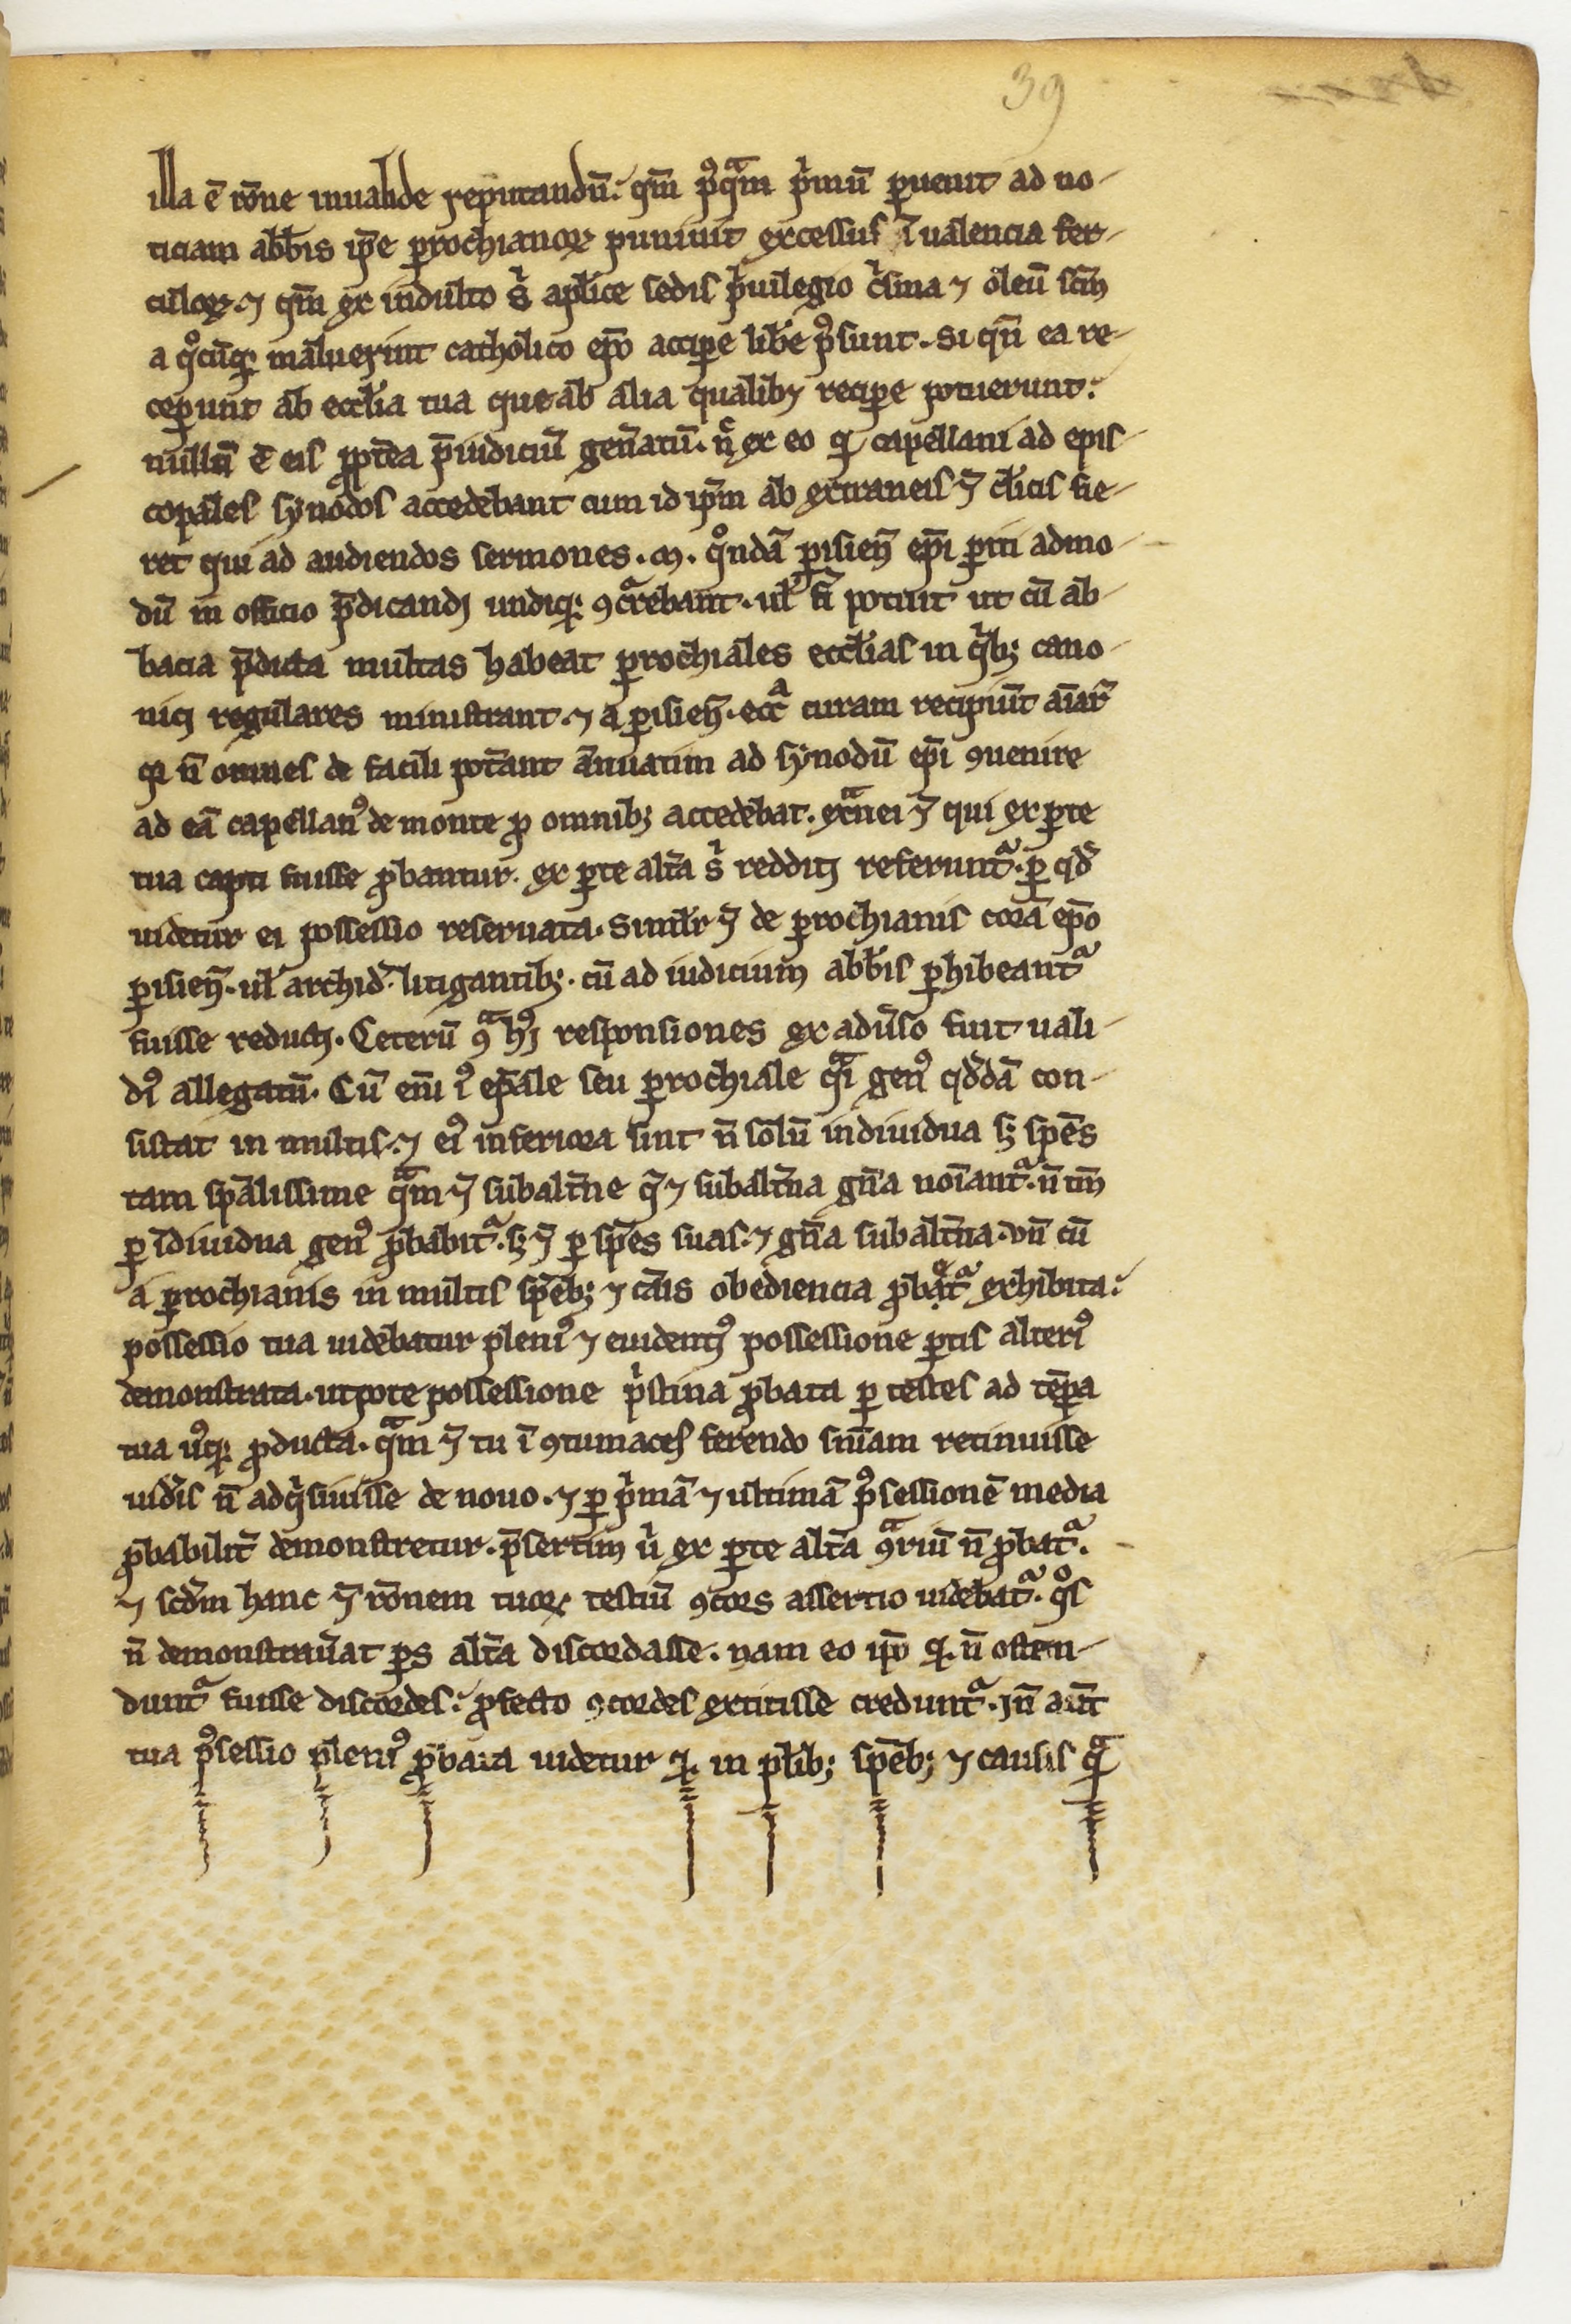 39
illa ē rōne inualide reputandū. qm̄ pꝰqᵃm pⁱmū ꝑuenit ad no-
ticiam abb̄is ip̄e ꝑrochianoꝝ puniuit excessus ī ualencia fer-
culoꝝ. ⁊ qm̄ ex indulto sⁱ aplice sedis pⁱuilegio cⁱsma ⁊ oleū scm̄
a qᵒcūqꝫ maluerint catholico ep̄o accipe libe pꝰsunt. Si qn̄ ea re-
ceperunt ab eccl̄ia tua que ab alia qualibꝫ recipe potuerunt.
nullū ē eis ꝓpt̄ea p̄iudiciū gen̄atū. nͨ ex eo ꝙ capellani ad epis-
copales synodos accedebant cum id ip̄m ab extraneis ⁊̄ cl̄icis fie-
ret qui ad audiendos sermones. M. qᵒndā ꝑisien̄ ep̄i ꝑiti admo-
dū in officio p̄dicandi undiqꝫ ꝯcᵃrebant. ul̄ fī potuit ut cū ab-
bacia p̄dicta multas habeat ꝑrochiales eccl̄ias in qⁱbꝫ cano-
nici regulares ministrant. ⁊ a ꝑisien̄. eccᵃ curam recipiūt aīaꝝ
ꝙ n̄ omnes de facili pot̄ant annuatim ad synodū ep̄i ꝯuenire
ad eā capellanꝰ de monte ꝓ omnibꝫ accedebat. exᵃnei ⁊̄ qui ex ꝑte
tua capti fuisse ꝓbantur. ex ꝑte alt̄a sⁱ redditi referuntᵃ. ꝑ qd̄
uidetur ei possessio reseruata. Simil̄r ⁊̄ de ꝑrochianis corā ep̄o
ꝑisien̄. ul̄ archid̄. litigantibꝫ. cū ad iudicium abb̄is ꝑhibeantᵃ
fuisse reducti. Ceterū ꝯᵃ hꝰi responsiones ex adūso fuit uali-
dꝰ allegatū. Cū em̄ iꝰ ep̄ale seu ꝑrochiale qᵃi genꝰ qd̄dā con-
sistat in multis. ⁊ eiꝰ inferiora sint n̄ solū indiuidua sꝫ sp̄es
tam sp̄alissime qᵃm ⁊̄ subalt̄ne q̄ ⁊ subalt̄na gn̄a noīantᵃ. n̄ tm̄
ꝑ īdiuidua genꝰ ꝓbabitᵃ. sꝫ ⁊̄ ꝑ sp̄es suas. ⁊ gn̄a subalt̄na. Vn̄ cū
a ꝑrochianis in multis sp̄ebꝫ ⁊ cāis obediencia ꝓbatᵃ exhibita.
possessio tua uidebatur pleniꝰ ⁊ euidentiꝰ possessione ꝑtis alteriꝰ
demonstrata. utpote possessione pⁱstina ꝓbata ꝑ testes ad tēpa
tua usꝫ ꝓducta. qᵃm ⁊̄ tu ī ꝯtumaces ferendo sn̄iam retinuisse
uid̄is n̄ adqⁱsiuisse de nouo. ⁊ ꝑ pⁱmā ⁊ ultimā pꝰsessionē media
ꝓbabilit̄ demonstretur. p̄sertim ū ex ꝑte alt̄a ꝯᵃriū n̄ ꝓbatᵃ.
⁊ scd̄m hanc ⁊̄ rōnem tuoꝝ testiū ꝯcors assertio uidebatᵃ. qᵒs
n̄ demonstrau̅at ꝑs alt̄a discordasse. nam eo ip̄o ꝙ n̄ osten-
duntᵃ fuisse discordes. ꝓfecto ꝯcordes extitisse creduntᵃ. In̄ aūt
tua pꝰsessio pleniꝰ ꝓbata uidetur ꝙ in pl̄ibꝫ sp̄ebꝫ ⁊ causis qᵃ